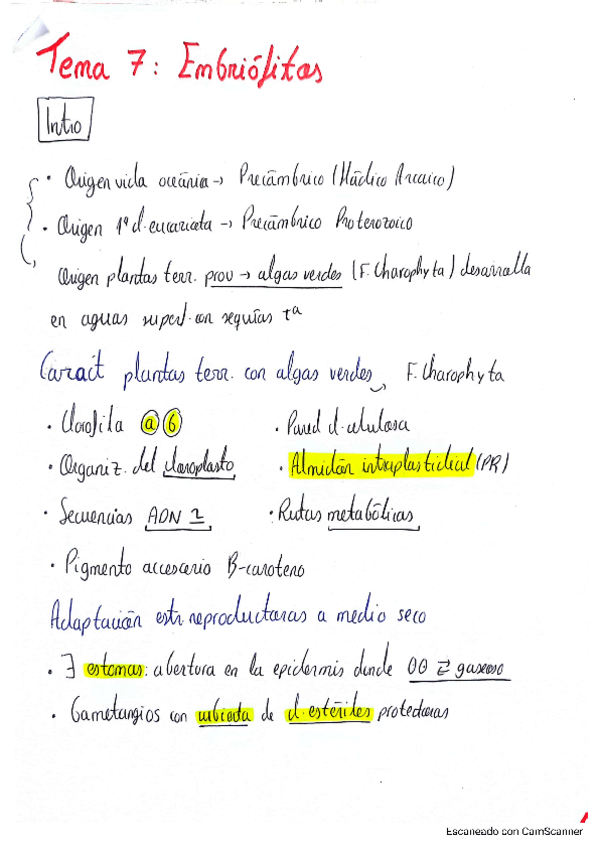 Tema 7: Embriófitas
Intro
· Origen vida oceánia → Precámbrico (Hádico Arcaico)
· Origen 1ª cl. eucariota → Precámbrico Proterozoico
Origen plantas terr. prov → algas verdes (F. Charophyta) desarrolla
en aguas superf. con sequías tª
Caract plantas terr. con algas verdes, F. Charophyta
· Clorofila a b
· Pared cl. celulosa
· Organiz. del cloroplasto
· Almidón intraplastidial (PR)
· Secuencias ADN
· Rutas metabólicas
· Pigmento accesorio B-caroteno
Adaptación estr. reproductoras a medio seco
· ∃ estomas: abertura en la epidermis donde ⇄ gaseoso
· Gametangios con cubierta de cl. estériles protectoras
Escaneado con CamScanner